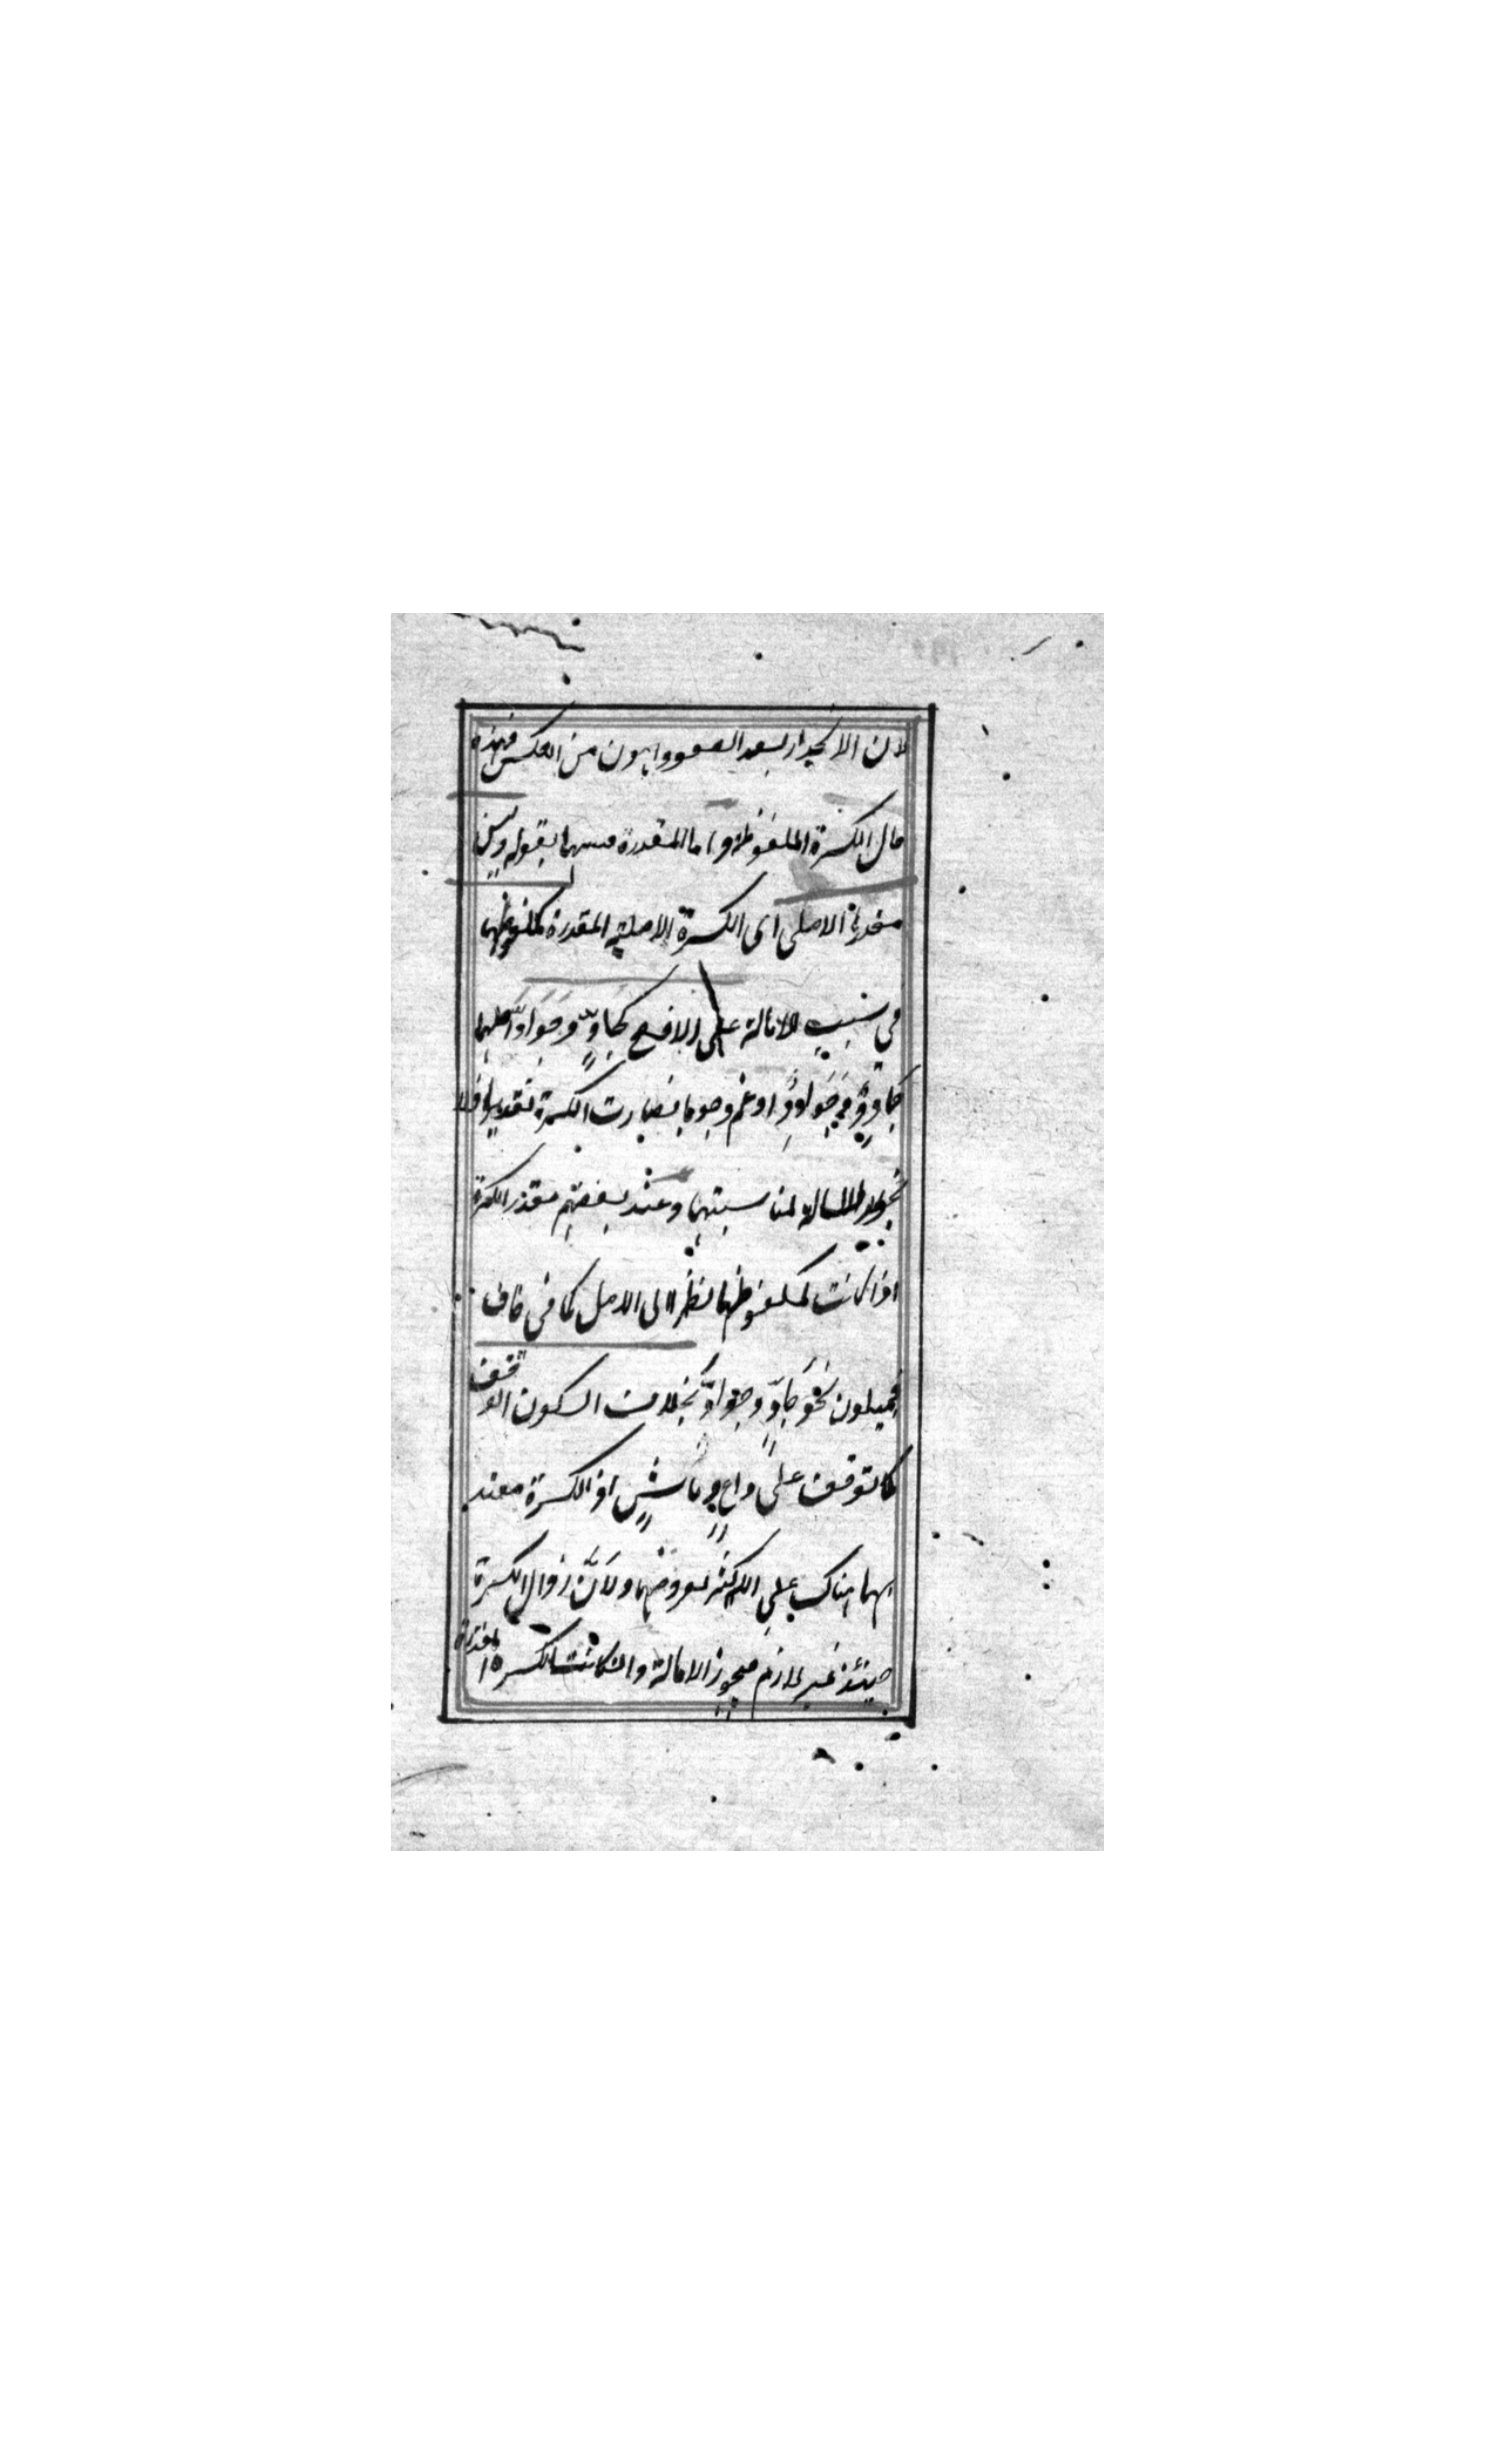 لان الانحدار بعد الصعود اهون من العكس فهذه
حال الكسرة الملفوظة واما المقدرة فبينها بقوله وليس
مقدرها الاصلى اى الكسرة الاصلية المقدرة كملفوظها
في سبب الامالة على الافصح كجادٍّ وجوادّ اصلهما
جادِدٌ وجَوادِدُ ادغم وجوبا فصارت الكسرة تقديرا فلا
لمناسبتها وعند بعضهم مقدر الكسرة
اذا كانت كملفوظها نظرا الى الاصل كما في خاف
فيميلون نحو جادٍّ وجوادّ بخلاف السكون الوقفى
كالتوقف على داعٍ وماشٍ اذ الكسرة معتد
بها هناك على الاكثر لعروضها ولانّ زوال الكسرة
حينئذ غير لازم فيجوز الامالة وان كانت الكسرة مقدرة